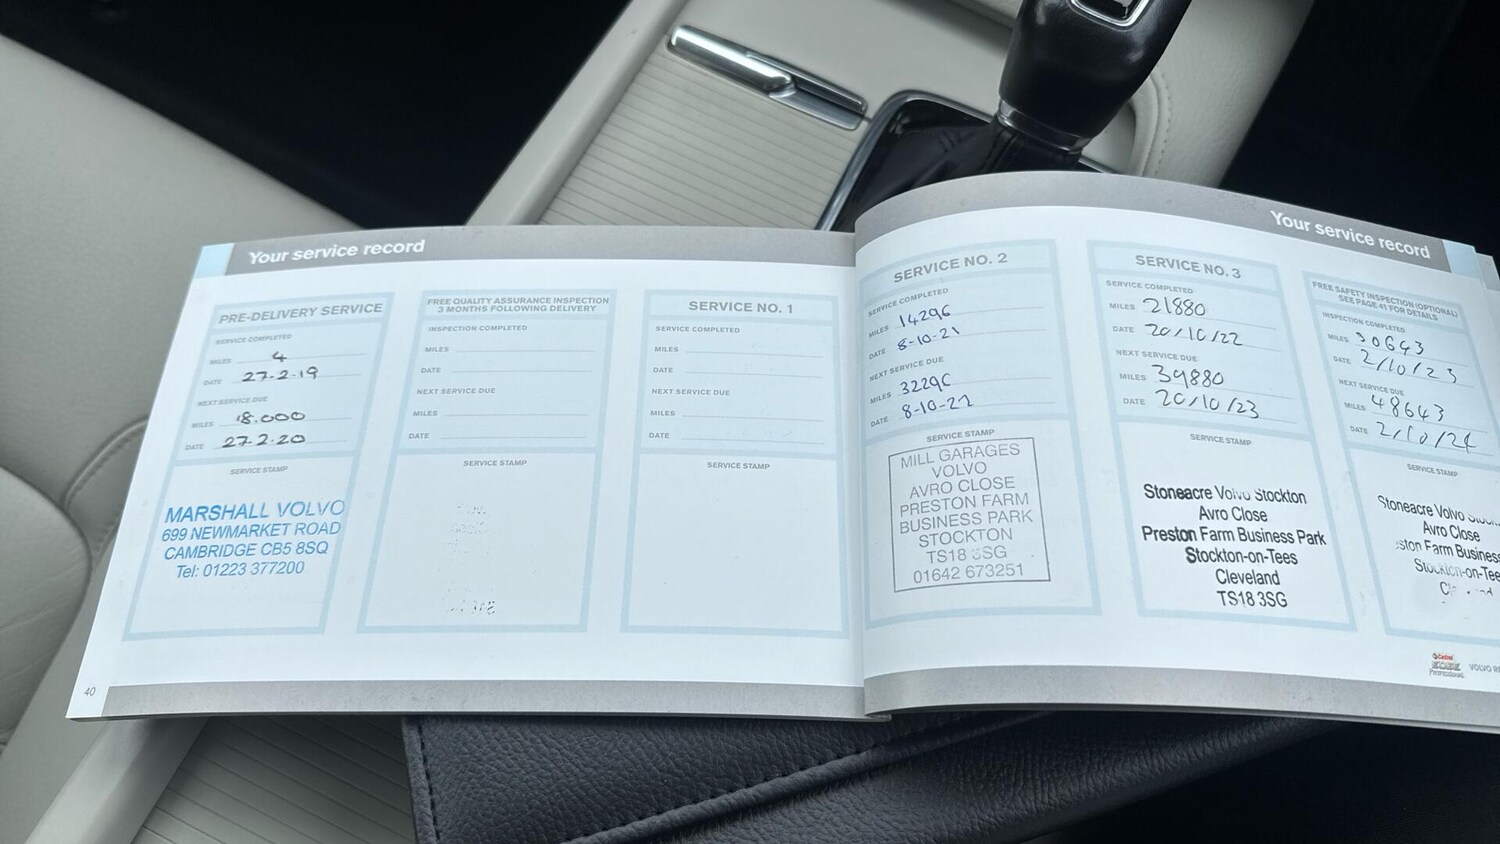 Your service record
PRE-DELIVERY SERVICE
SERVICE COMPLETED
MILES 4
DATE 27.2.19
NEXT SERVICE DUE
MILES 18.000
DATE 27.2.20
SERVICE STAMP
MARSHALL VOLVO
699 NEWMARKET ROAD
CAMBRIDGE CB5 8SQ
Tel: 01223 377200
FREE QUALITY ASSURANCE INSPECTION
3 MONTHS FOLLOWING DELIVERY
INSPECTION COMPLETED
MILES
DATE
NEXT SERVICE DUE
MILES
DATE
SERVICE STAMP
SERVICE NO. 1
SERVICE COMPLETED
MILES
DATE
NEXT SERVICE DUE
MILES
DATE
SERVICE STAMP
40
Your service record
SERVICE NO. 2
SERVICE COMPLETED
MILES 14296
DATE 8-10-21
NEXT SERVICE DUE
MILES 32296
DATE 8-10-22
SERVICE STAMP
MILL GARAGES
VOLVO
AVRO CLOSE
PRESTON FARM
BUSINESS PARK
STOCKTON
TS18 3SG
01642 673251
SERVICE NO. 3
SERVICE COMPLETED
MILES 21880
DATE 20/10/22
NEXT SERVICE DUE
MILES 39880
DATE 20/10/23
SERVICE STAMP
Stoneacre Volvo Stockton
Avro Close
Preston Farm Business Park
Stockton-on-Tees
Cleveland
TS18 3SG
FREE SAFETY INSPECTION (OPTIONAL)
SEE PAGE 41 FOR DETAILS
INSPECTION COMPLETED
MILES 30643
DATE 2/10/23
NEXT SERVICE DUE
MILES 48643
DATE 2/10/24
SERVICE STAMP
Stoneacre Volvo
Avro Close
Farm Business
Stockton-on-Tee
Castrol
EDGE
Professional
VOLVO